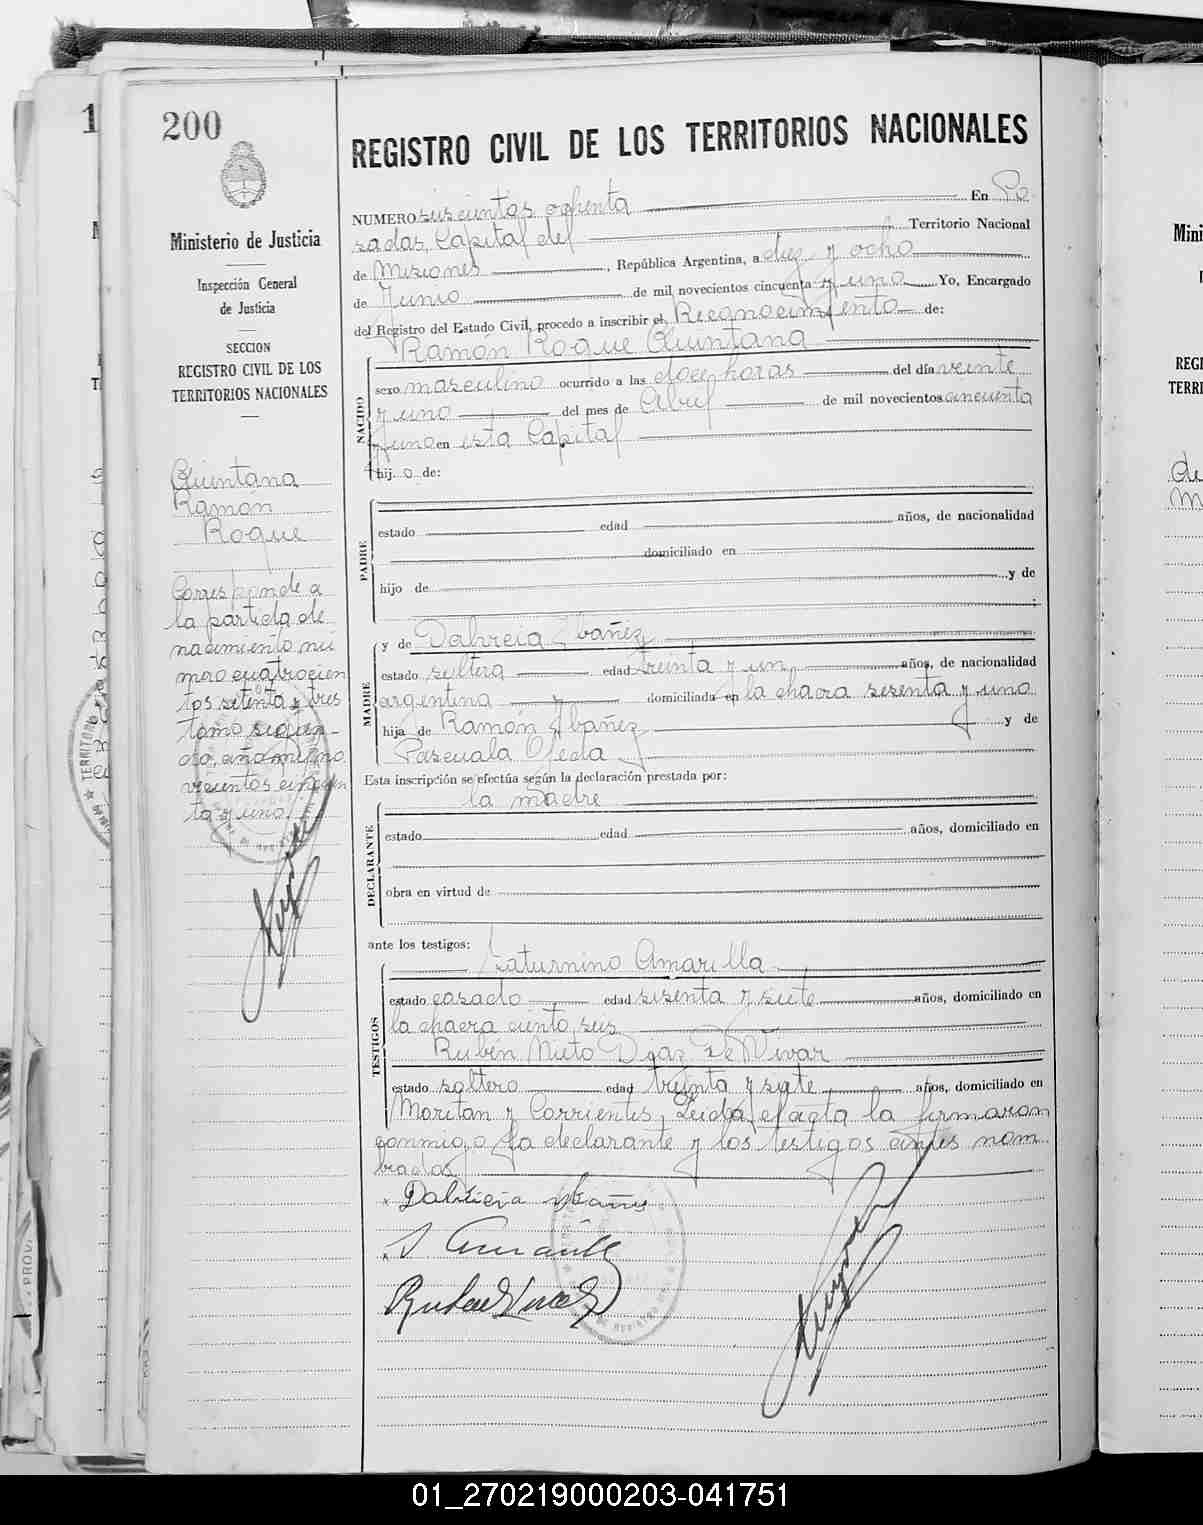 200
Ministerio de Justicia
Inspección General
de Justicia
SECCION
REGISTRO CIVIL DE LOS
TERRITORIOS NACIONALES
Quintana
Ramón
Roque
Corresponde a
la partida de
nacimiento nú
mero cuatrocien
tos setenta y tres
tomo segun-
do, año mil no
vecientos cincuen
ta y uno.
REGISTRO CIVIL DE LOS TERRITORIOS NACIONALES
NUMERO seiscientos ochenta En Po
sadas, Capital del Territorio Nacional
de Misiones, República Argentina, a diez y ocho
de Junio de mil novecientos cincuenta y uno Yo, Encargado
del Registro del Estado Civil, procedo a inscribir el Reconocimiento de:
Ramón Roque Quintana
NACIDO
sexo masculino ocurrido a las doce horas del día veinte
y uno del mes de Abril de mil novecientos cincuenta
y uno en esta Capital
hijo de:
PADRE
estado edad años, de nacionalidad
domiciliado en
hijo de y de
;
MADRE
y de Ibañez
estado soltera edad treinta y un años, de nacionalidad
argentina y domiciliada en la chacra sesenta y uno
hija de Ramón Ibañez y de
Pascuala Ojeda
Esta inscripción se efectúa según la declaración prestada por:
la madre
DECLARANTE
estado edad años, domiciliado en
obra en virtud de
ante los testigos:
TESTIGOS
Saturnino Amarilla
estado casado edad sesenta y siete años, domiciliado en
la chacra ciento seis
Rubén Nieto Diaz De Vivar
estado soltero edad treinta y siete años, domiciliado en
y Corrientes, Leída el acta la firmaron
conmigo la declarante y los testigos antes nom
brados
01_270219000203-041751